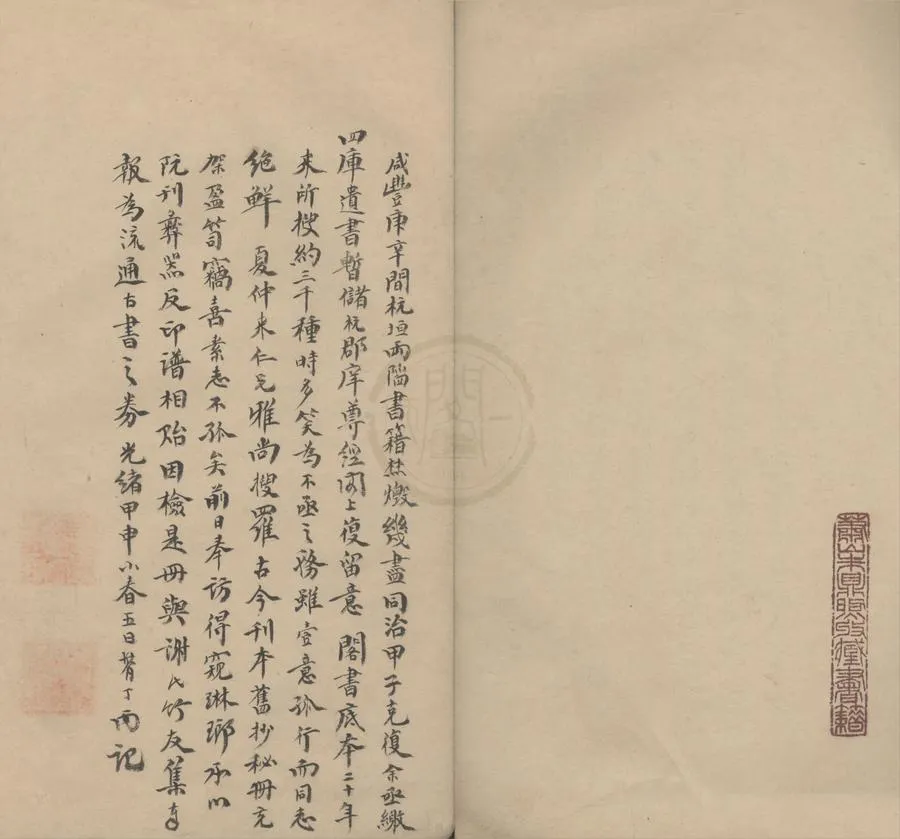 蕭山朱鼎煦收藏書籍
咸豐庚辛間杭垣兩陷書籍焚燬幾盡同治甲子克復余亟繳
四庫遺書暫儲杭郡庠尊經閣上復留意 閣書底本二十年
来所搜約三千種時多笑為不亟之務雖壹意孤行而同志
絶鮮 夏仲来仁兄雅尚搜羅古今刊本舊抄秘冊充
架盈笥竊喜素志不孤矣前日奉訪得窺琳瑯承以
阮刊彝器及印譜相貽因檢是冊與謝氏竹友集奉
報為流通古書之券光緒甲申小春五日丁丙記